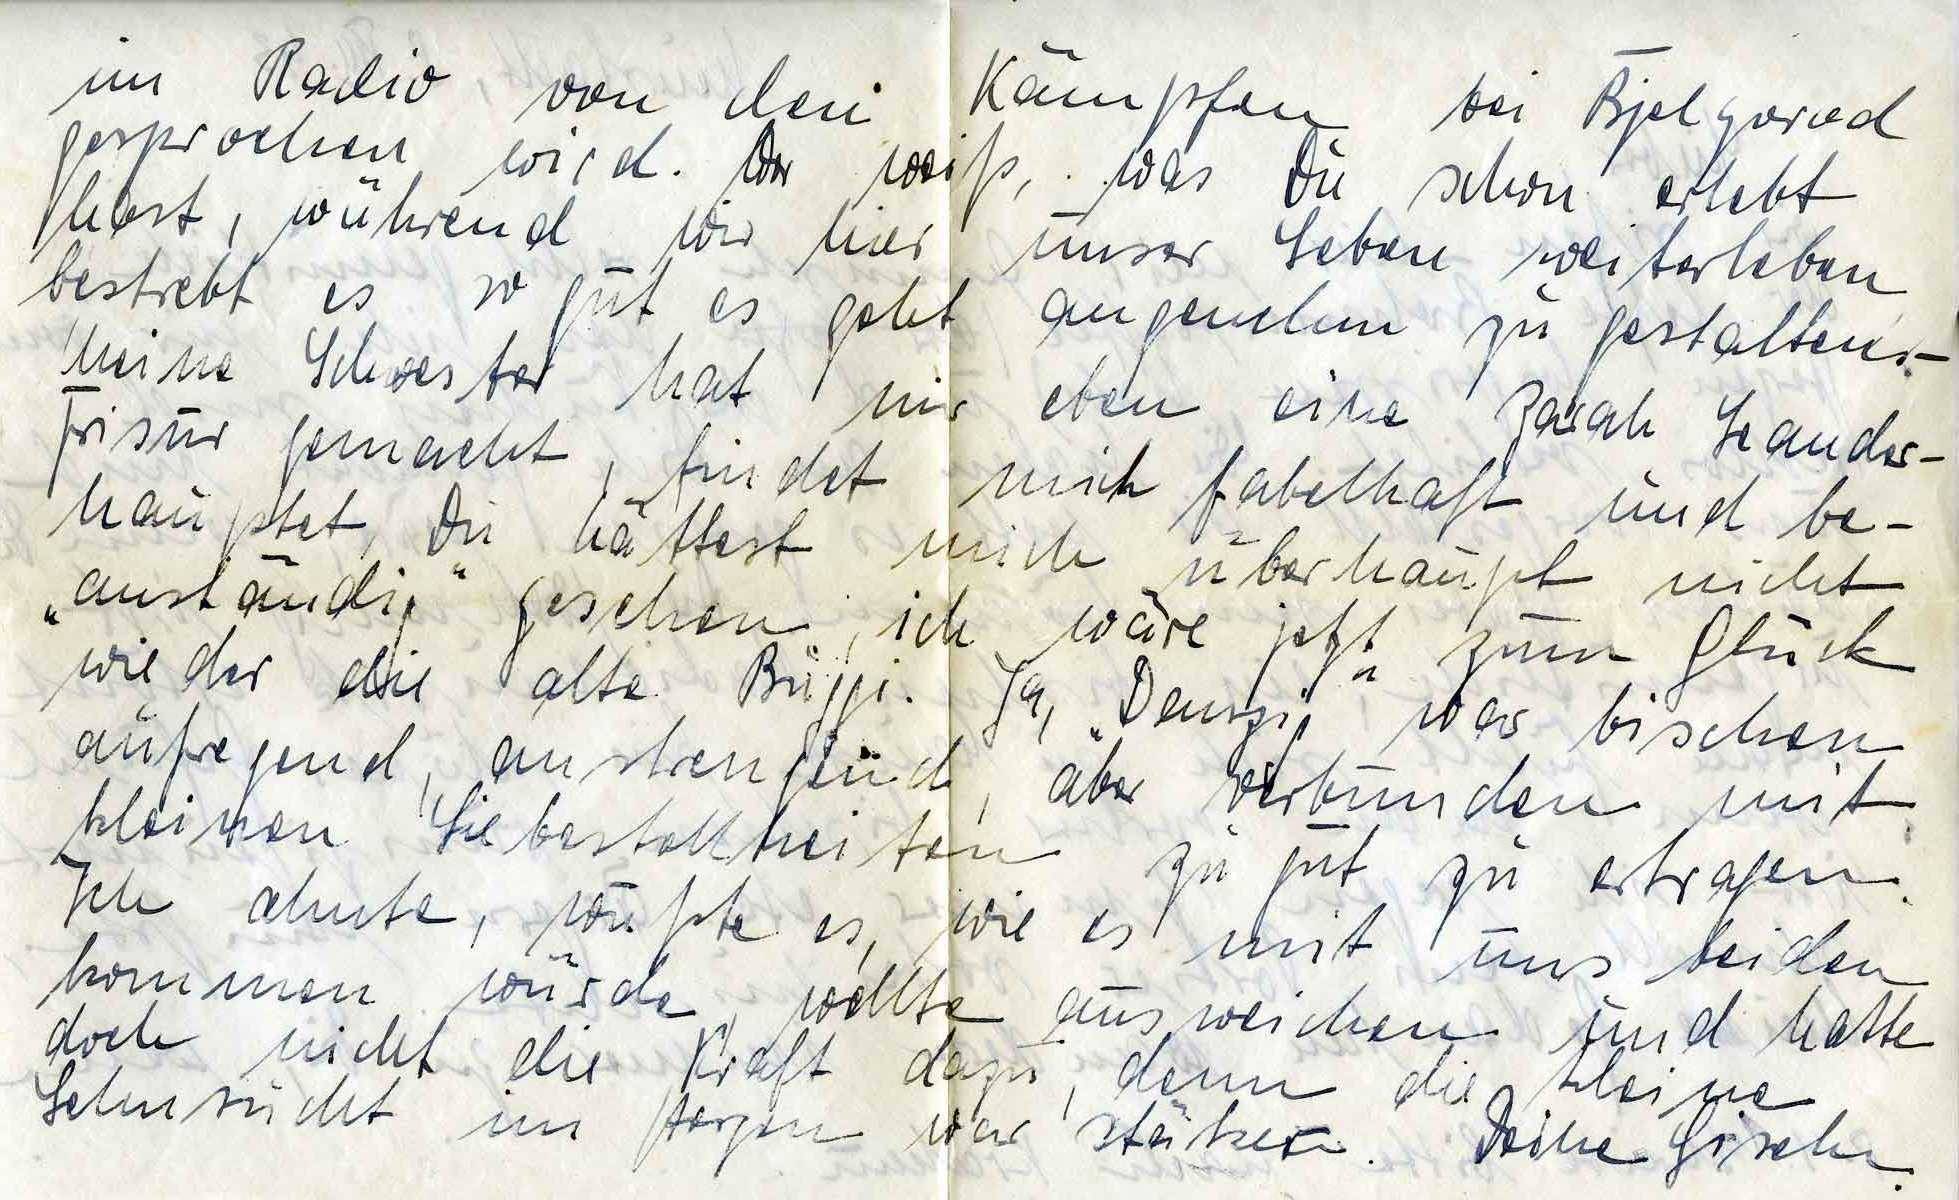 im Radio von den Kämpfen bei Bjelgorod
gesprochen wird. Wer weiß, was Du schon erlebt
hast, während wir hier unser Leben weiterleben
bestrebt es so gut es geht angenehm zu gestalten.-
Meine Schwester hat mir eben eine Zarah Leander-
Frisur gemacht, findet mich fabelhaft und be-
hauptet, Du hättest mich überhaupt nicht
„anständig“ gesehen, ich wäre jetzt zum Glück
wieder die alte Büppi. Ja, „Danzig“ war bischen
aufregend, anstrengend, aber verbunden mit
kleinen Liebestollheiten zu gut zu ertragen.
Ich ahnte, wußte es, wie es mit uns beiden
kommen würde, wollte ausweichen und hatte
doch nicht die Kraft dazu, denn die kleine
Sehnsucht im Herzen war stärker. Deine